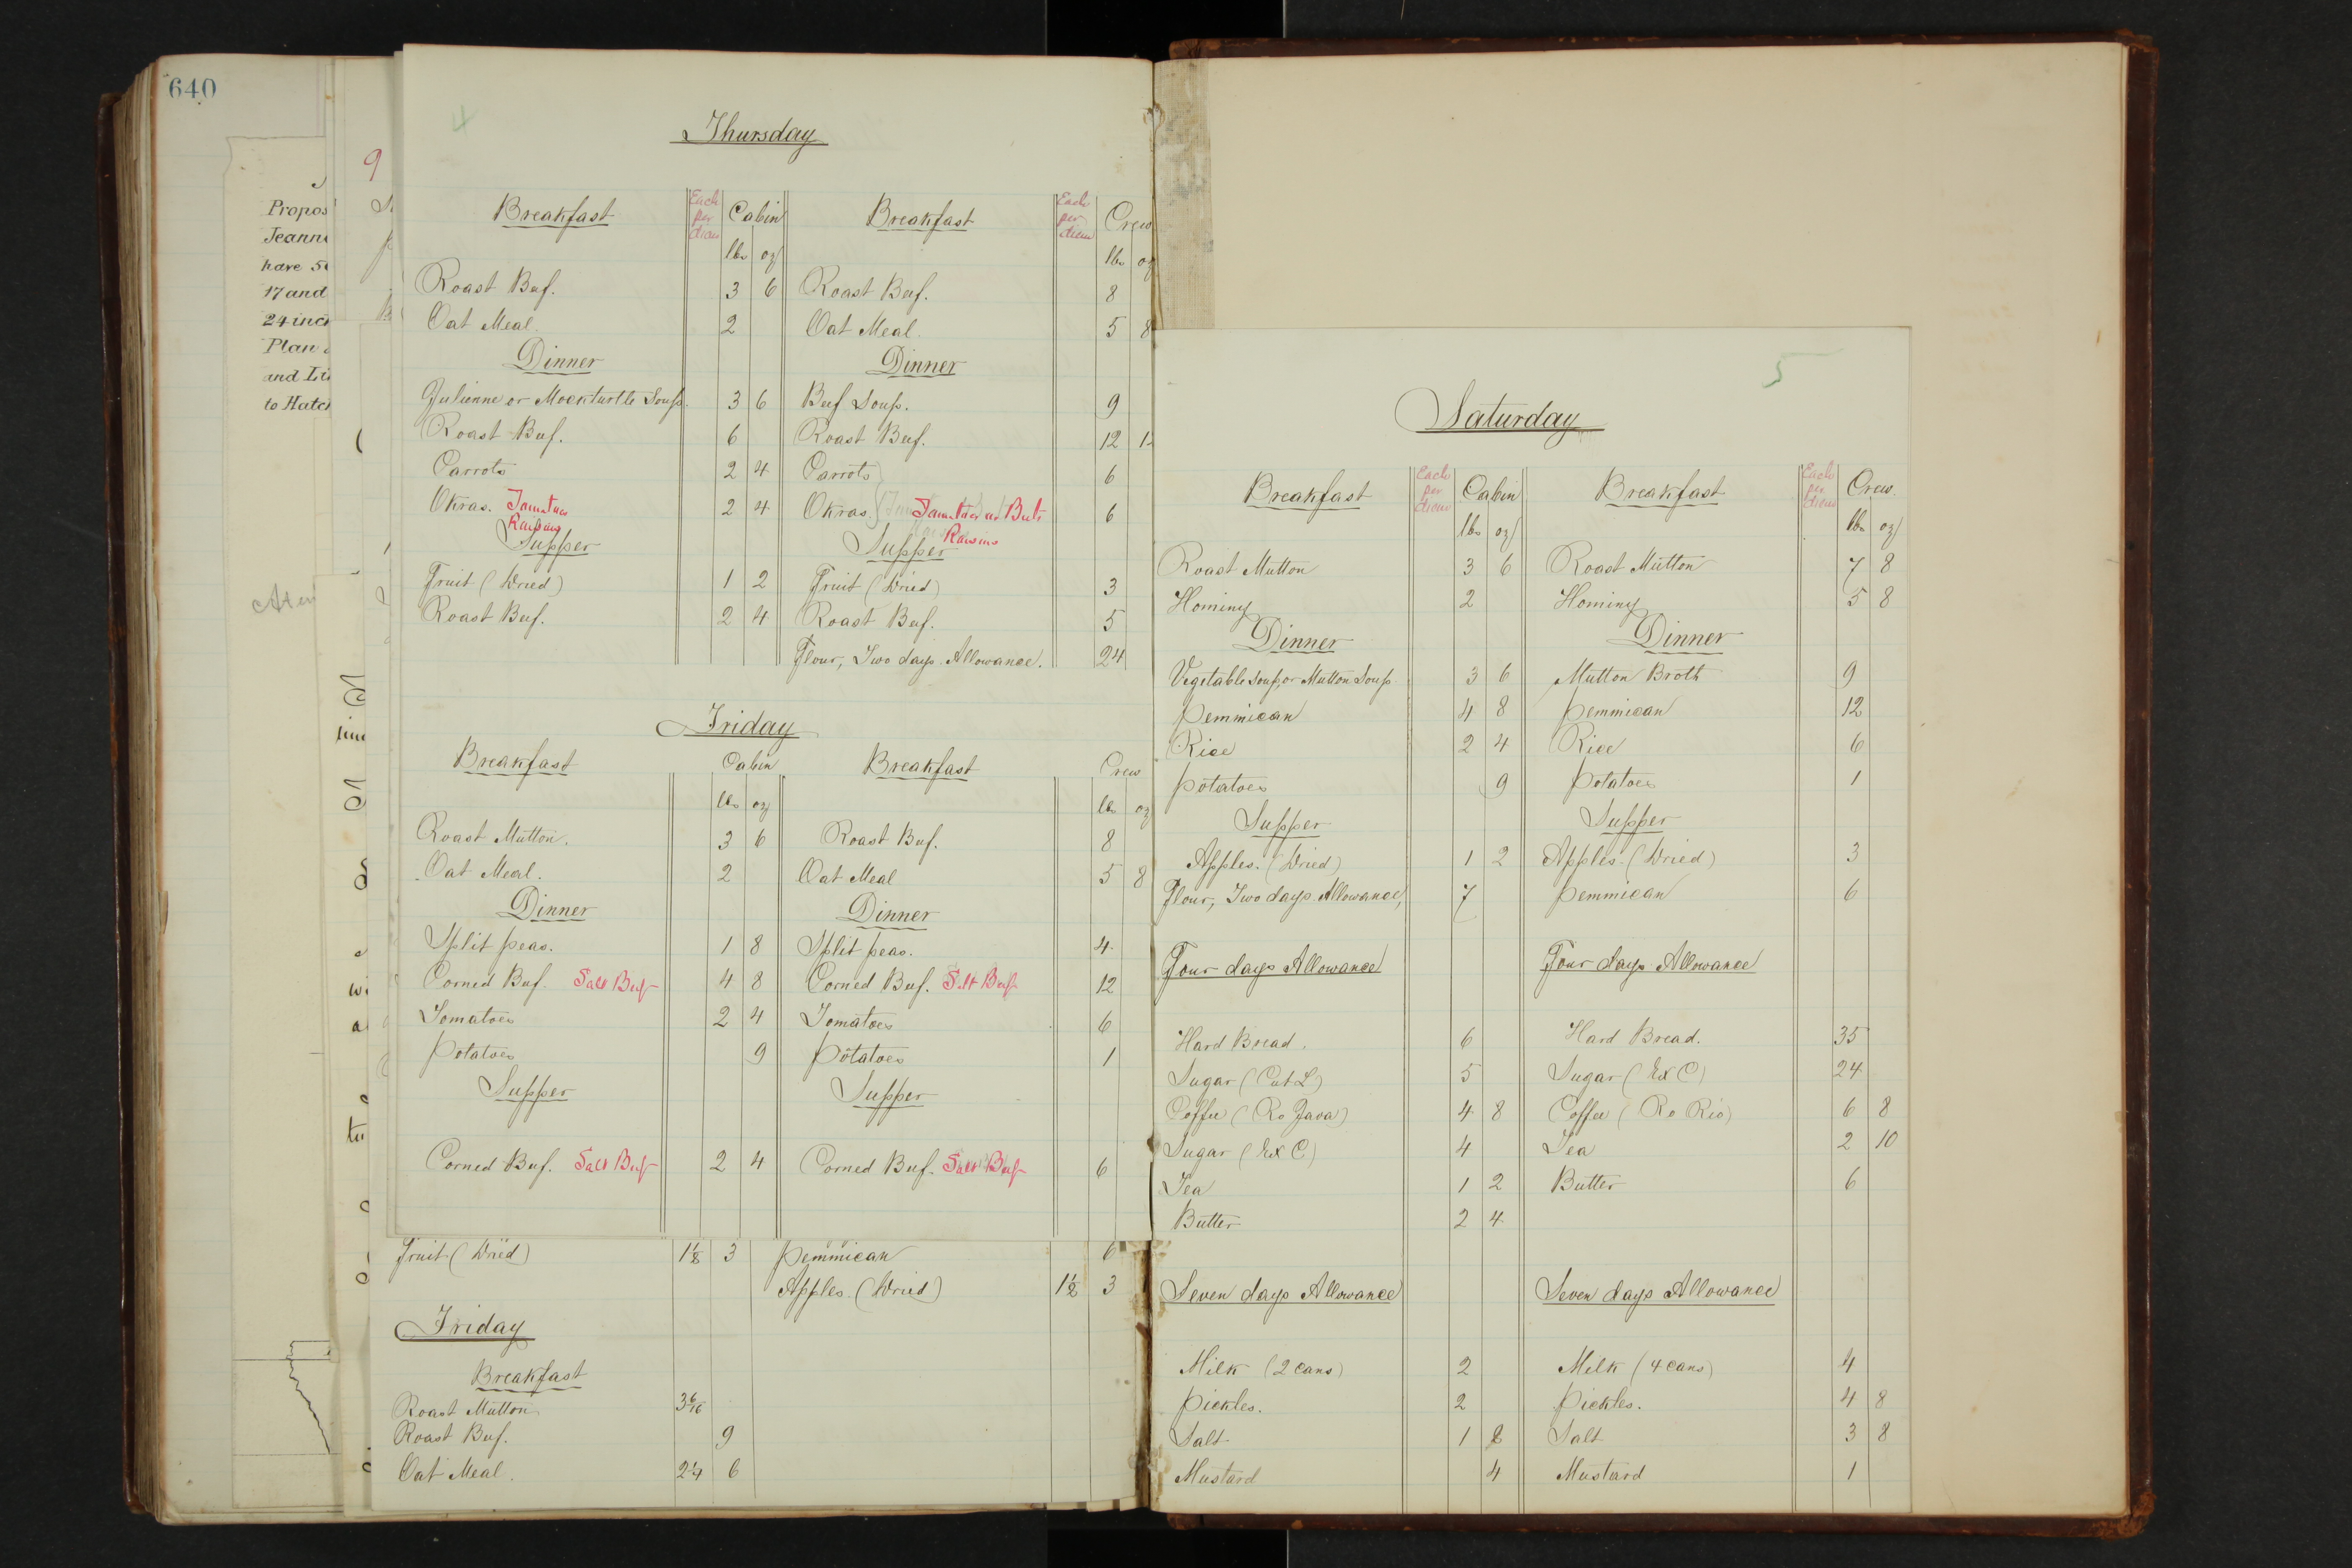 640
Propos
Jeann
have 5
17 and
24 inc
Plan
and Li
to Hatc
9
4
Thursday
Breakfast Each per diem Cabin Breakfast Each per diem Crew
lbs oz lbs oz
Roast Beef. 3 6 Roast Beef. 8
Oat Meal. 2 Oat Meal. 5 8
Dinner Dinner
Julienne or Mockturtle Soup. 3 6 Beef Soup. 9
Roast Beef. 6 Roast Beef. 12
Carrots 2 4 Carrots 6
Okras. Tomatoes 2 4 Okras. Tomatoes or Beets 6
Raisins Raisins
Supper Supper
Fruit (Dried) 1 2 Fruit (Dried) 3
Roast Beef. 2 4 Roast Beef. 5
Flour, Two days Allowance. 24
Friday
Breakfast Cabin Breakfast Crew
lbs oz lbs oz
Roast Mutton. 3 6 Roast Beef. 8
Oat Meal. 2 Oat Meal 5 8
Dinner Dinner
Split peas. 1 8 Split peas. 4
Corned Beef. Salt Beef 4 8 Corned Beef. Salt Beef 12
Tomatoes 2 4 Tomatoes 6
Potatoes 9 Potatoes 1
Supper Supper
Corned Beef. Salt Beef 2 4 Corned Beef. Salt Beef 6
Fruit (Dried) 1 1/8 3 Pemmican 6
Apples (Dried) 1 1/2 3
Friday
Breakfast
Roast Mutton 3 6/16
Roast Beef. 9
Oat Meal. 2 1/4 6
5
Saturday
Breakfast Each per diem Cabin Breakfast Each per diem Crew.
lbs oz lbs oz
Roast Mutton 3 6 Roast Mutton 7 8
Hominy 2 Hominy 5 8
Dinner Dinner
Vegetable soup, or Mutton Soup 3 6 Mutton Broth 9
Pemmican 4 8 Pemmican 12
Rice 2 4 Rice 6
Potatoes 9 Potatoes 1
Supper Supper
Apples. (Dried) 1 2 Apples. (Dried) 3
Flour, Two days Allowance, 7 Pemmican 6
Four days Allowance Four days Allowance
Hard Bread. 6 Hard Bread. 35
Sugar (Cut L) 5 Sugar (Ex C) 24
Coffee (Ro Java) 4 8 Coffee (Ro Rio) 6 8
Sugar (Ex C) 4 Tea 2 10
Tea 1 2 Butter 6
Butter 2 4
Seven days Allowance Seven days Allowance
Milk (2 cans) 2 Milk (4 cans) 4
Pickles. 2 Pickles. 4 8
Salt 1 8 Salt 3 8
Mustard 4 Mustard 1